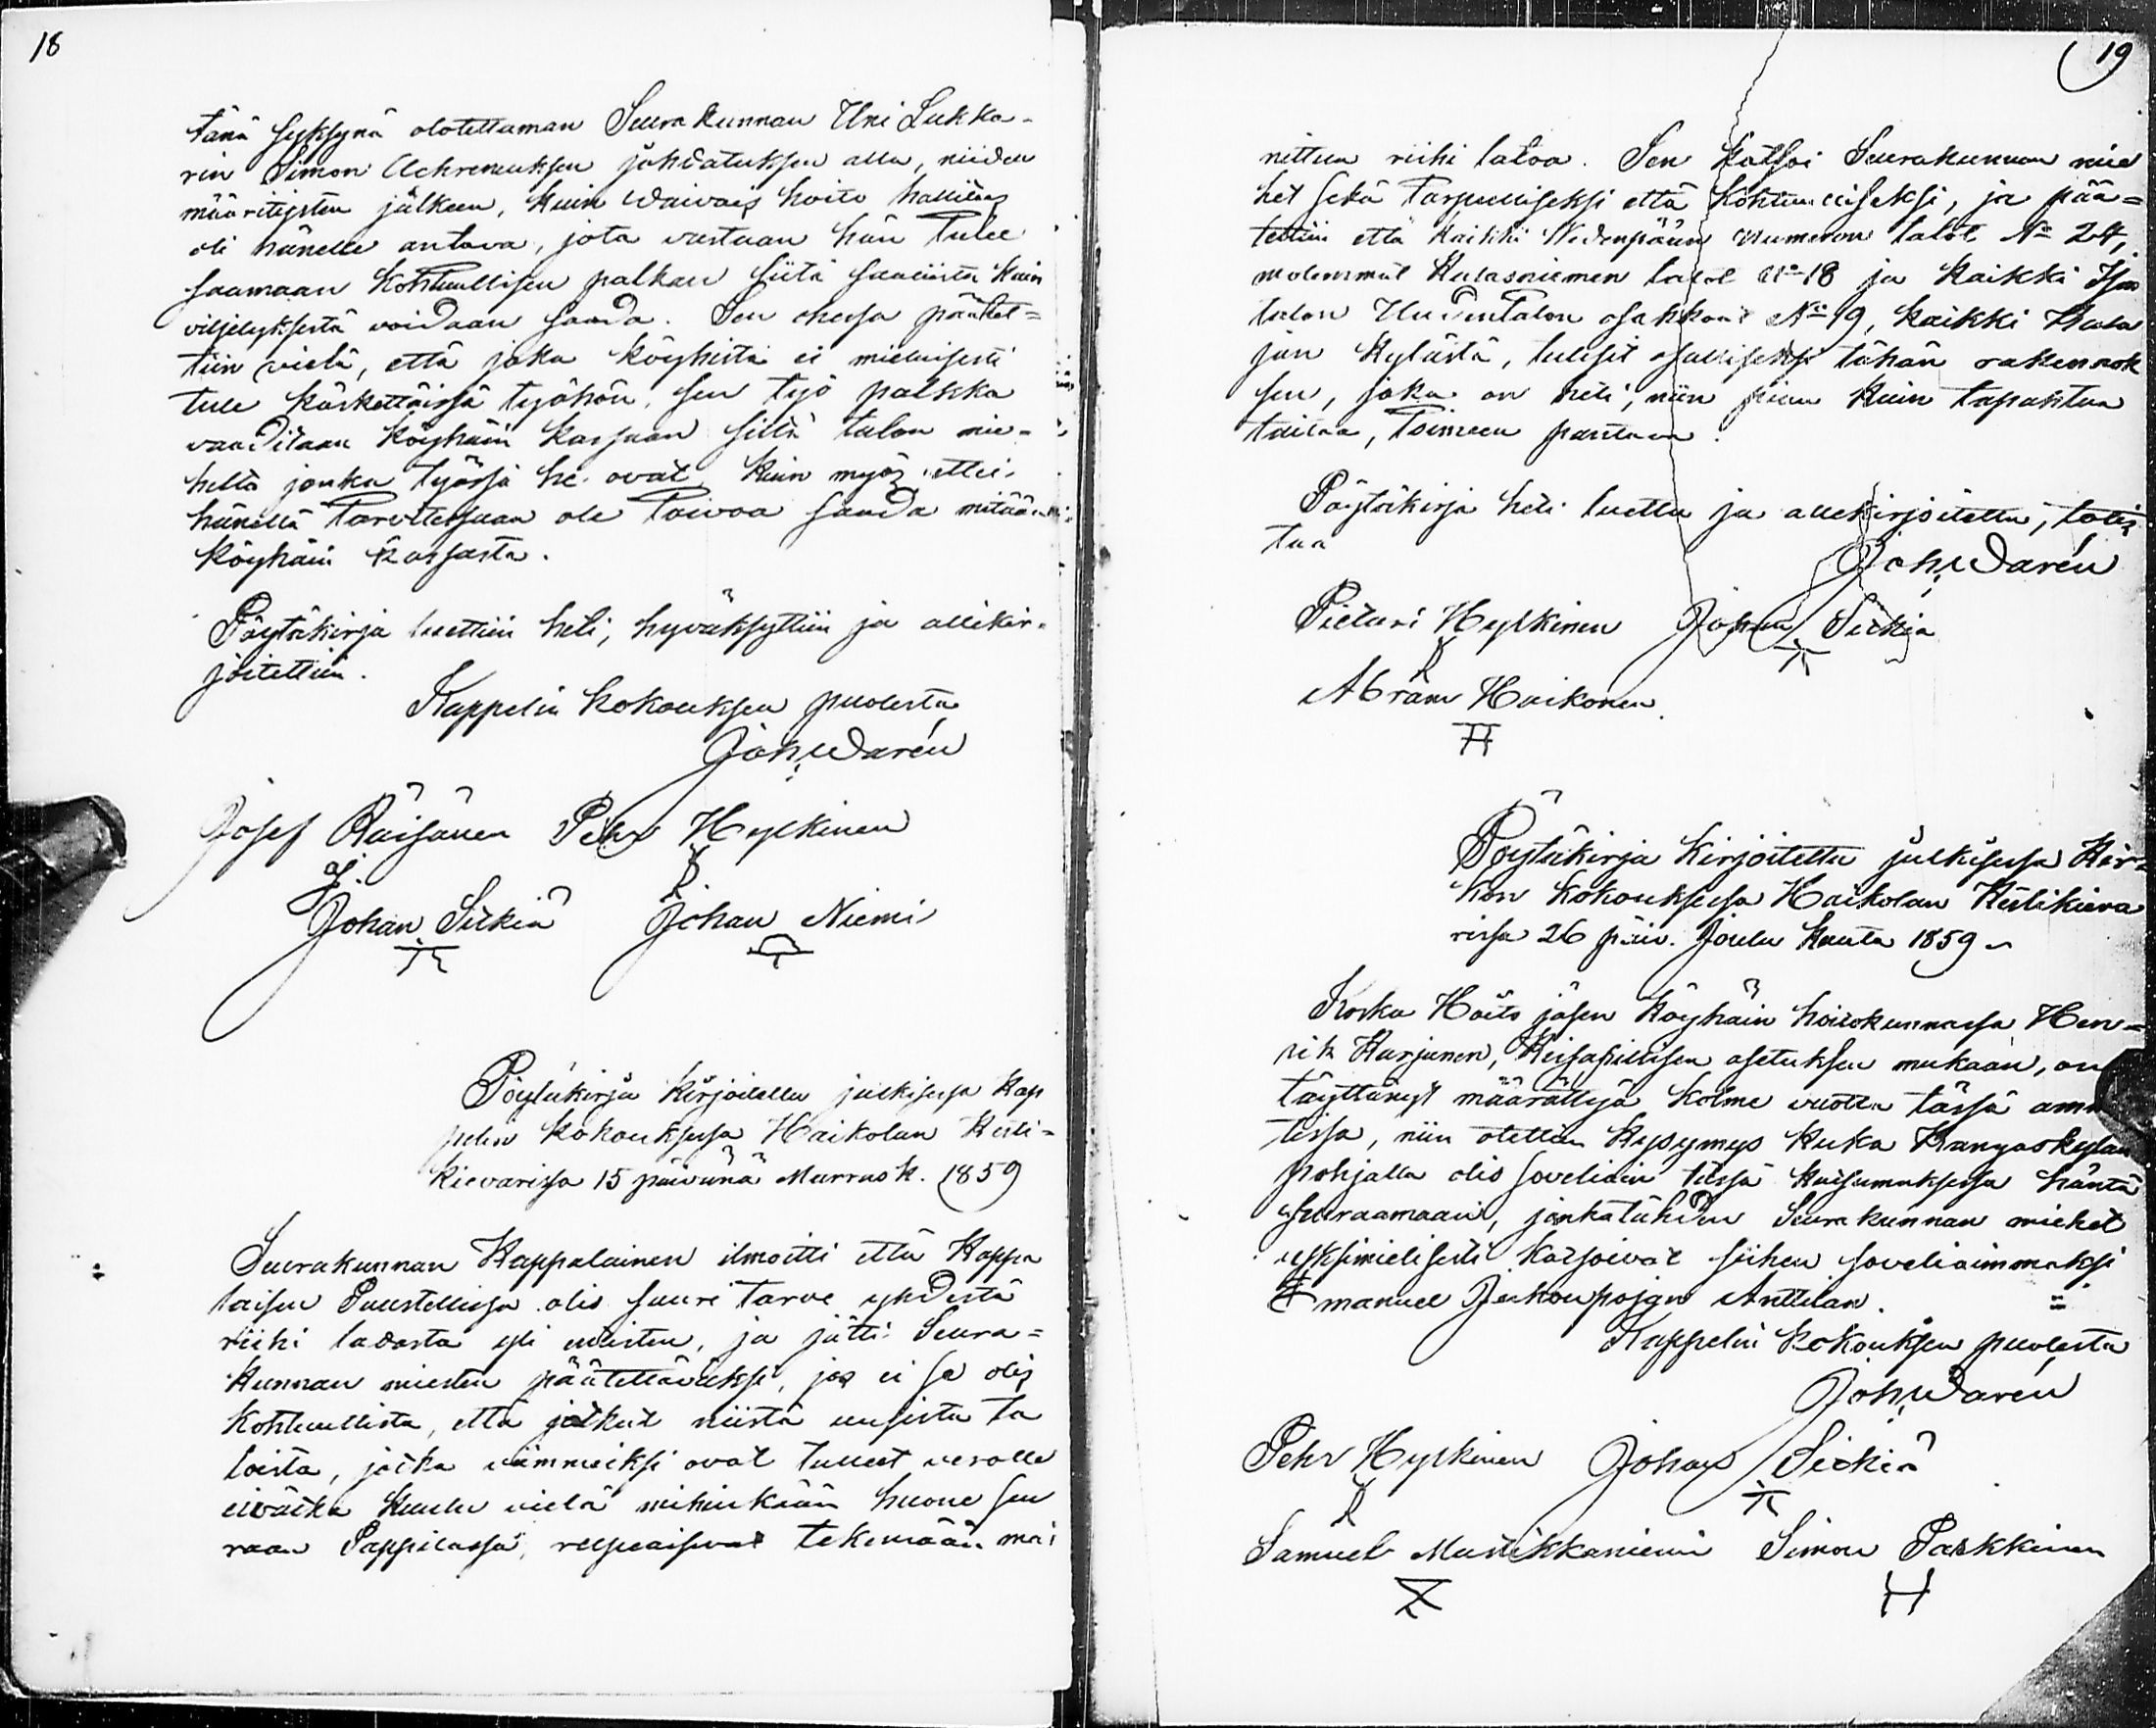 18
tänä syksynä olotettaman Seurakunnan Uni Lukka-
rin Simon Achreniuksen johdatuksen alla, niiden
määritysten jälkeen, kuin Waivais hoito hallitus
oli hänelle antava, jota vastaan hän tulee
saamaan kohtuullisen palkan siitä saaliista kuin
viljelyksestä voidaan saada. Sen ohessa päätet=
tiin vielä, että joka köyhistä ei mieluisesti
tule käskettäissä työhön, sen työ palkka
vaaditaan köyhäin kassaan siltä talon mie-
heltä jonka työssä he ovat, kuin myös ettei
hänellä tarvitessaan ole toivoa saada mitään
köyhäin kassasta.
Pöytäkirja luettiin heti, hyväksyttiin ja allekir-
joitettiin.
Kappelin kokouksen puolesta
Joh. Warén
Josef Räisänen Pehr Hylkinen
Johan Sitkiä Johan Niemi
Pöytäkirja kirjoitettu julkisessa Kap
pelin kokouksessa Haikolan Kesti=
kievarissa 15 päivänä Marrask. 1859
Seurakunnan Kappalainen ilmoitti että Kappa
laisen Puustellissa olis suuri tarve yhdestä
riihi ladosta yli entisten, ja jätti Seura=
kunnan miesten päätettäväksi, jos ei se olis
kohtuullista, että jotkut niistä uusista ta
loista, jotka viimmeiksi ovat tulleet verolle
eivätkä kuulu vielä mihinkään huone seu
raan Pappilassa, velpaisivat tekemään mai
19
nittua riihi latoa. Sen katsoi Seurakunnan mie
het sekä tarpeelliseksi että kohtuulliseksi, ja pää=
tettiin että kaikki Wedenpään numeron talot No 24,
molemmat Kulasniemen talot No 18 ja kaikki Ison
talon Uudentalon osakkaat No 19, kaikki
jan kylästä, tulesit osalliseksi tähän rakennuk
sen, joka on heti, niin pian kuin tapahtua
taitaa, toimeen pantava.
Pöytäkirja heti luettu ja allekirjoitettu, todis
taa
Joh. Warén
Pietari Hylkinen Johan Sitkiä
Abram Haikonen
Pöytäkirja kirjoitettu julkisessa Kir=
kon kokouksessa Haikolan Kestikieva
rissa 26 päiv. Joulu kuuta 1859
Koska Hoito jäsen köyhäin hoitokunnassa Hen=
rik Karjunen, Keisarillisen asetuksen mukaan, on
täyttänyt määrättyjä kolme vuotta tässä am
tissa, niin otettiin kysymys kuka Kangaskylan
pohjalla olis soveliain tässä kutsumuksessa häntä
seuraamaan, jonkatähden Seurakunnan miehet
yksimielisesti katsoivat siihen soveliaimmaksi
Emanuel Juhonpojan Anttilan.
Kappelin kokouksen puolesta
Joh. Warén
Pehr Hylkinen Johan Sitkiä
Samuel Mustikkaniemi Simon Parkkinen